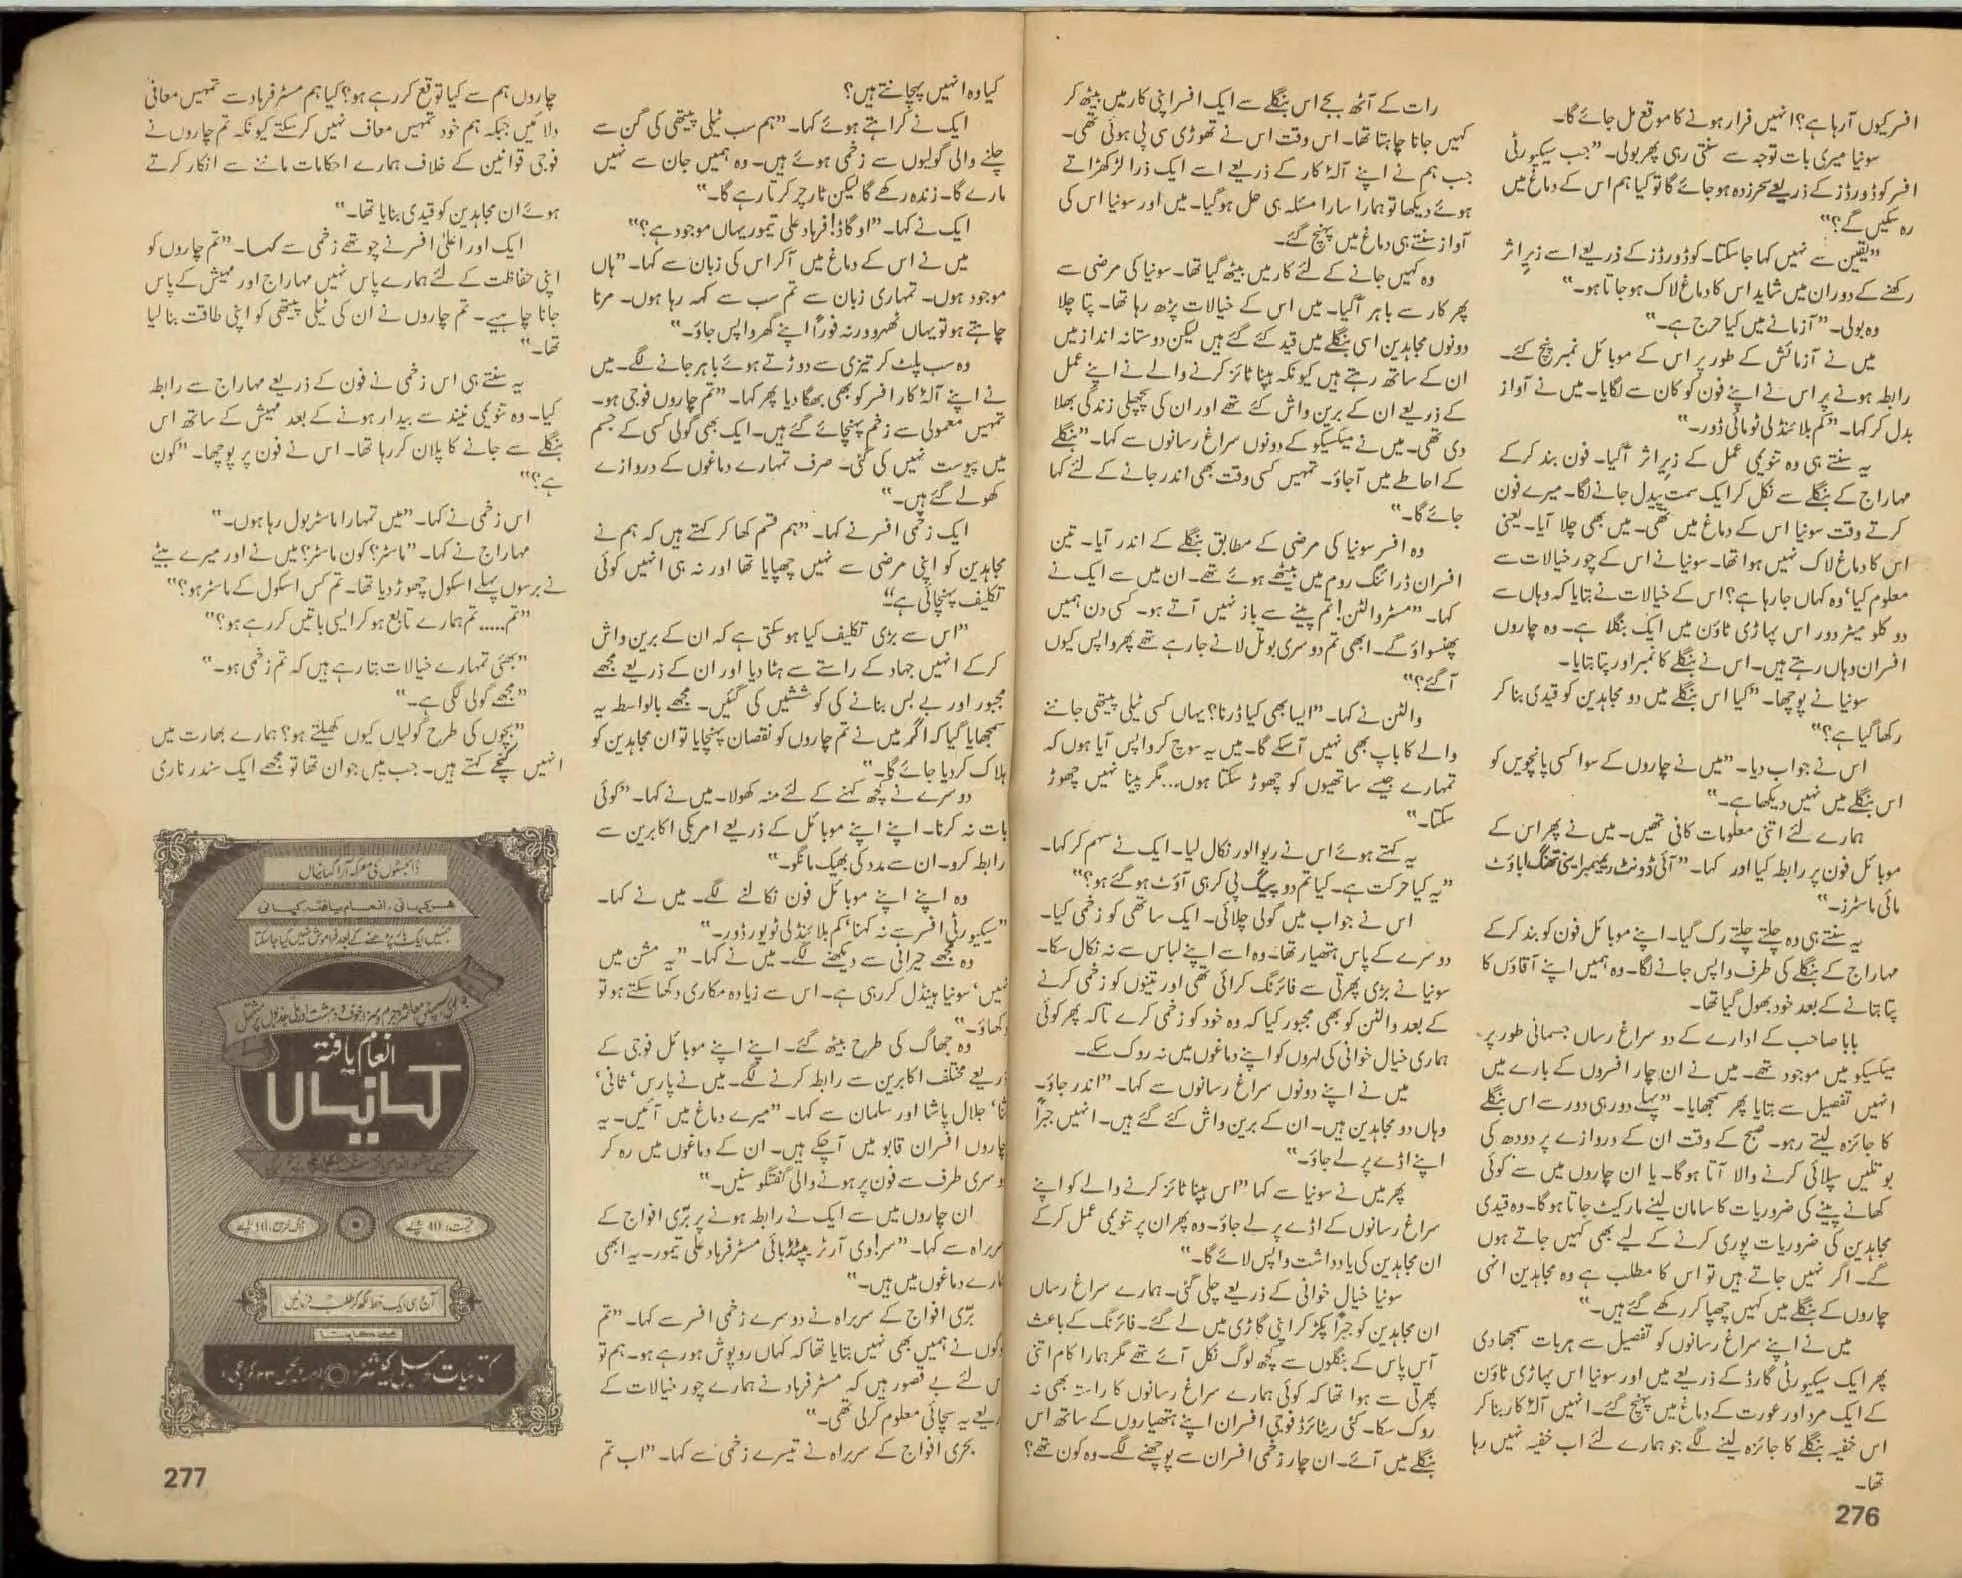 افسر کیوں آرہا ہے؟ انہیں فرار ہونے کا موقع مل جائے گا۔
سونیا میری بات توجہ سے سنتی رہی پھر بولی۔ "جب سیکیورٹی
افسر کوڈ ورڈز کے ذریعے سحر زدہ ہو جائے گا تو کیا ہم اس کے دماغ میں
رہ سکیں گے؟"
"یقین سے نہیں کہا جاسکتا۔ کوڈ ورڈز کے ذریعے اسے زیر اثر
رکھنے کے دوران میں شاید اس کا دماغ لاک ہو جاتا ہو۔"
وہ بولی۔ "آزمانے میں کیا حرج ہے۔"
میں نے آزمائش کے طور پر اس کے موبائل نمبر پنچ کئے۔
رابطہ ہونے پر اس نے اپنے فون کو کان سے لگایا۔ میں نے آواز
بدل کر کہا۔ "کم بلائنڈلی ٹو مائی ڈور۔"
یہ سنتے ہی وہ تنویمی عمل کے زیرِ اثر آگیا۔ فون بند کرکے
مہاراج کے بنگلے سے نکل کر ایک سمت پیدل جانے لگا۔ میرے فون
کرتے وقت سونیا اس کے دماغ میں تھی۔ میں بھی چلا آیا۔ یعنی
اس کا دماغ لاک نہیں ہوا تھا۔ سونیا نے اس کے چور خیالات سے
معلوم کیا' وہ کہاں جارہا ہے؟ اس کے خیالات نے بتایا کہ وہاں سے
دو کلو میٹر دور اس پہاڑی ٹاؤن میں ایک بنگلا ہے۔ وہ چاروں
افسران وہاں رہتے ہیں۔ اس نے بنگلے کا نمبر اور پتا بتایا۔
سونیا نے پوچھا۔ "کیا اس بنگلے میں دو مجاہدین کو قیدی بنا کر
رکھا گیا ہے؟"
اس نے جواب دیا۔ "میں نے چاروں کے سوا کسی پانچویں کو
اس بنگلے میں نہیں دیکھا ہے۔"
ہمارے لئے اتنی معلومات کافی تھیں۔ میں نے پھر اس کے
موبائل فون پر رابطہ کیا اور کہا۔ "آئی ڈونٹ ریممبر اینی تھنگ اباؤٹ
مائی ماسٹرز۔"
یہ سنتے ہی وہ چلتے چلتے رک گیا۔ اپنے موبائل فون کو بند کرکے
مہاراج کے بنگلے کی طرف واپس جانے لگا۔ وہ ہمیں اپنے آقاؤں کا
پتا بتانے کے بعد خود بھول گیا تھا۔
بابا صاحب کے ادارے کے دو سراغ رساں جسمانی طور پر
میکسیکو میں موجود تھے۔ میں نے ان چار افسروں کے بارے میں
انہیں تفصیل سے بتایا پھر سمجھایا۔ "پہلے دور ہی دور سے اس بنگلے
کا جائزہ لیتے رہو۔ صبح کے وقت ان کے دروازے پر دودھ کی
بوتلیں سپلائی کرنے والا آتا ہوگا۔ یا ان چاروں میں سے کوئی
کھانے پینے کی ضروریات کا سامان لینے مارکیٹ جاتا ہوگا۔ وہ قیدی
مجاہدین کی ضروریات پوری کرنے کے لیے بھی کہیں جاتے ہوں
گے۔ اگر نہیں جاتے ہیں تو اس کا مطلب ہے وہ مجاہدین انہی
چاروں کے بنگلے میں کہیں چھپا کر رکھے گئے ہیں۔"
میں نے اپنے سراغ رسانوں کو تفصیل سے ہر بات سمجھادی
پھر ایک سیکیورٹی گارڈ کے ذریعے میں اور سونیا اس پہاڑی ٹاؤن
کے ایک مرد اور عورت کے دماغ میں پہنچ گئے۔ انہیں آلۂ کار بنا کر
اس خفیہ بنگلے کا جائزہ لینے لگے جو ہمارے لئے اب خفیہ نہیں رہا
تھا۔
276
رات کے آٹھ بجے اس بنگلے سے ایک افسر اپنی کار میں بیٹھ کر
کہیں جانا چاہتا تھا۔ اس وقت اس نے تھوڑی سی پی ہوئی تھی۔
جب ہم نے اپنے آلۂ کار کے ذریعے اسے ایک ذرا لڑکھڑاتے
ہوئے دیکھا تو ہمارا سارا مسئلہ ہی حل ہو گیا۔ میں اور سونیا اس کی
آواز سنتے ہی دماغ میں پہنچ گئے۔
وہ کہیں جانے کے لئے کار میں بیٹھ گیا تھا۔ سونیا کی مرضی سے
پھر کار سے باہر آگیا۔ میں اس کے خیالات پڑھ رہا تھا۔ پتا چلا
دونوں مجاہدین اسی بنگلے میں قید کئے گئے ہیں لیکن دوستانہ انداز میں
ان کے ساتھ رہتے ہیں کیونکہ ہپنا ٹائز کرنے والے نے اپنے عمل
کے ذریعے ان کے برین واش کئے تھے اور ان کی پچھلی زندگی بھلا
دی تھی۔ میں نے میکسیکو کے دونوں سراغ رسانوں سے کہا۔ "بنگلے
کے احاطے میں آجاؤ۔ تمہیں کسی وقت بھی اندر جانے کے لئے کہا
جائے گا۔"
وہ افسر سونیا کی مرضی کے مطابق بنگلے کے اندر آیا۔ تین
افسران ڈرائنگ روم میں بیٹھے ہوئے تھے۔ ان میں سے ایک نے
کہا۔ "مسٹر والٹن! تم پینے سے باز نہیں آتے ہو۔ کسی دن ہمیں
پھنسواؤ گے۔ ابھی تم دوسری بوتل لانے جارہے تھے پھر واپس کیوں
آگئے؟"
والٹن نے کہا۔ "ایسا بھی کیا ڈرنا؟ یہاں کسی ٹیلی پیتھی جاننے
والے کا باپ بھی نہیں آسکے گا۔ میں یہ سوچ کر واپس آیا ہوں کہ
تمہارے جیسے ساتھیوں کو چھوڑ سکتا ہوں... مگر پینا نہیں چھوڑ
سکتا۔"
یہ کہتے ہوئے اس نے ریوالور نکال لیا۔ ایک نے سہم کر کہا۔
"یہ کیا حرکت ہے۔ کیا تم دو پیگ پی کر ہی آؤٹ ہو گئے ہو؟"
اس نے جواب میں گولی چلائی۔ ایک ساتھی کو زخمی کیا۔
دوسرے کے پاس ہتھیار تھا۔ وہ اسے اپنے لباس سے نہ نکال سکا۔
سونیا نے بڑی پھرتی سے فائرنگ کرائی تھی اور تینوں کو زخمی کرنے
کے بعد والٹن کو بھی مجبور کیا کہ وہ خود کو زخمی کرے تاکہ پھر کوئی
ہماری خیال خوانی کی لہروں کو اپنے دماغوں میں نہ روک سکے۔
میں نے اپنے دونوں سراغ رسانوں سے کہا۔ "اندر جاؤ۔
وہاں دو مجاہدین ہیں۔ ان کے برین واش کئے گئے ہیں۔ انہیں جبراً
اپنے اڈے پر لے جاؤ۔"
پھر میں نے سونیا سے کہا "اس ہپنا ٹائز کرنے والے کو اپنے
سراغ رسانوں کے اڈے پر لے جاؤ۔ وہ پھر ان پر تنویمی عمل کرکے
ان مجاہدین کی یادداشت واپس لائے گا۔"
سونیا خیال خوانی کے ذریعے چلی گئی۔ ہمارے سراغ رساں
ان مجاہدین کو جبراً پکڑ کر اپنی گاڑی میں لے گئے۔ فائرنگ کے باعث
آس پاس کے بنگلوں سے کچھ لوگ نکل آئے تھے مگر ہمارا کام اتنی
پھرتی سے ہوا تھا کہ کوئی ہمارے سراغ رسانوں کا راستہ بھی نہ
روک سکا۔ کئی ریٹائرڈ فوجی افسران اپنے ہتھیاروں کے ساتھ اس
بنگلے میں آئے۔ ان چار زخمی افسران سے پوچھنے لگے۔ وہ کون تھے؟
کیا وہ انہیں پہچانتے ہیں؟
ایک نے کراہتے ہوئے کہا۔ "ہم سب ٹیلی پیتھی کی گن سے
چلنے والی گولیوں سے زخمی ہوئے ہیں۔ وہ ہمیں جان سے نہیں
مارے گا۔ زندہ رکھے گا لیکن ٹارچر کرتا رہے گا۔"
ایک نے کہا۔ "او گاڈ! فرہاد علی تیمور یہاں موجود ہے؟"
میں نے اس کے دماغ میں آکر اس کی زبان سے کہا۔ "ہاں
موجود ہوں۔ تمہاری زبان سے تم سب سے کہہ رہا ہوں۔ مرنا
چاہتے ہو تو یہاں ٹھہرو ورنہ فوراً اپنے گھر واپس جاؤ۔"
وہ سب پلٹ کر تیزی سے دوڑتے ہوئے باہر جانے لگے۔ میں
نے اپنے آلۂ کار افسر کو بھی بھگا دیا پھر کہا۔ "تم چاروں فوجی ہو۔
تمہیں معمولی سے زخم پہنچائے گئے ہیں۔ ایک بھی گولی کسی کے جسم
میں پیوست نہیں کی گئی۔ صرف تمہارے دماغوں کے دروازے
کھولے گئے ہیں۔"
ایک زخمی افسر نے کہا۔ "ہم قسم کھا کر کہتے ہیں کہ ہم نے
مجاہدین کو اپنی مرضی سے نہیں چھپایا تھا اور نہ ہی انہیں کوئی
تکلیف پہنچائی ہے"
"اس سے بڑی تکلیف کیا ہوسکتی ہے کہ ان کے برین واش
کرکے انہیں جہاد کے راستے سے ہٹا دیا اور ان کے ذریعے مجھے
مجبور اور بے بس بنانے کی کوششیں کی گئیں۔ مجھے بالواسطہ یہ
سمجھایا گیا کہ اگر میں نے تم چاروں کو نقصان پہنچایا تو ان مجاہدین کو
ہلاک کردیا جائے گا۔"
دوسرے نے کچھ کہنے کے لئے منہ کھولا۔ میں نے کہا۔ "کوئی
بات نہ کرنا۔ اپنے اپنے موبائل کے ذریعے امریکی اکابرین سے
رابطہ کرو۔ ان سے مدد کی بھیک مانگو۔"
وہ اپنے اپنے موبائل فون نکالنے لگے۔ میں نے کہا۔
"سیکیورٹی افسر سے نہ کہنا' کم بلائنڈلی ٹو یور ڈور۔"
وہ مجھے حیرانی سے دیکھنے لگے۔ میں نے کہا۔ "یہ مشن میں
نہیں' سونیا ہینڈل کررہی ہے۔ اس سے زیادہ مکاری دکھا سکتے ہو تو
دکھاؤ۔"
وہ جھاگ کی طرح بیٹھ گئے۔ اپنے اپنے موبائل فوجی کے
ذریعے مختلف اکابرین سے رابطہ کرنے لگے۔ میں نے پارس' ثانی'
جلال پاشا اور سلمان سے کہا۔ "میرے دماغ میں آئیں۔ یہ
چاروں افسران قابو میں آچکے ہیں۔ ان کے دماغوں میں رہ کر
دوسری طرف سے فون پر ہونے والی گفتگو سنیں۔"
ان چاروں میں سے ایک نے رابطہ ہونے پر بری افواج کے
سربراہ سے کہا۔ "سر! وی آر ٹریپڈ بائی مسٹر فرہاد علی تیمور۔ یہ ابھی
ہمارے دماغوں میں ہیں۔"
بری افواج کے سربراہ نے دوسرے زخمی افسر سے کہا۔ "تم
لوگوں نے ہمیں بھی نہیں بتایا تھا کہ کہاں روپوش ہو رہے ہو۔ ہم تو
اس لئے بے قصور ہیں کہ مسٹر فرہاد نے ہمارے چور خیالات کے
ذریعے یہ سچائی معلوم کرلی تھی۔"
بحری افواج کے سربراہ نے تیسرے زخمی سے کہا۔ "اب تم
چاروں ہم سے کیا توقع کررہے ہو؟ کیا ہم مسٹر فرہاد سے تمہیں معافی
دلائیں جبکہ ہم خود تمہیں معاف نہیں کرسکتے کیونکہ تم چاروں نے
فوجی قوانین کے خلاف ہمارے احکامات ماننے سے انکار کرتے
ہوئے ان مجاہدین کو قیدی بنایا تھا۔"
ایک اور اعلیٰ افسر نے چوتھے زخمی سے کہا۔ "تم چاروں کو
اپنی حفاظت کے لئے ہمارے پاس نہیں مہاراج اور مہیش کے پاس
جانا چاہیے۔ تم چاروں نے ان کی ٹیلی پیتھی کو اپنی طاقت بنا لیا
تھا۔"
یہ سنتے ہی اس زخمی نے فون کے ذریعے مہاراج سے رابطہ
کیا۔ وہ تنویمی نیند سے بیدار ہونے کے بعد مہیش کے ساتھ اس
بنگلے سے جانے کا پلان کررہا تھا۔ اس نے فون پر پوچھا۔ "کون
ہے؟"
اس زخمی نے کہا۔ "میں تمہارا ماسٹر بول رہا ہوں۔"
مہاراج نے کہا۔ "ماسٹر؟ کون ماسٹر؟ میں نے اور میرے بیٹے
نے برسوں پہلے اسکول چھوڑ دیا تھا۔ تم کس اسکول کے ماسٹر ہو؟"
"تم..... تم ہمارے تابع ہو کر ایسی باتیں کررہے ہو؟"
"بھئی تمہارے خیالات بتا رہے ہیں کہ تم زخمی ہو۔"
"مجھے گولی لگی ہے۔"
"بچوں کی طرح گولیاں کیوں کھیلتے ہو؟ ہمارے بھارت میں
انہیں کنچے کہتے ہیں۔ جب میں جوان تھا تو مجھے ایک سندر ناری
ڈائجسٹوں کی معرکہ آرا کہانیاں
ہر کہانی، انعام یافتہ کہانی
جنہیں ایک بار پڑھنے کے بعد فراموش نہیں کیا جاسکتا
انعام یافتہ
کہانیاں
آج ہی ایک خط لکھ کر طلب فرمائیں
کتابیات پبلی کیشنز
277